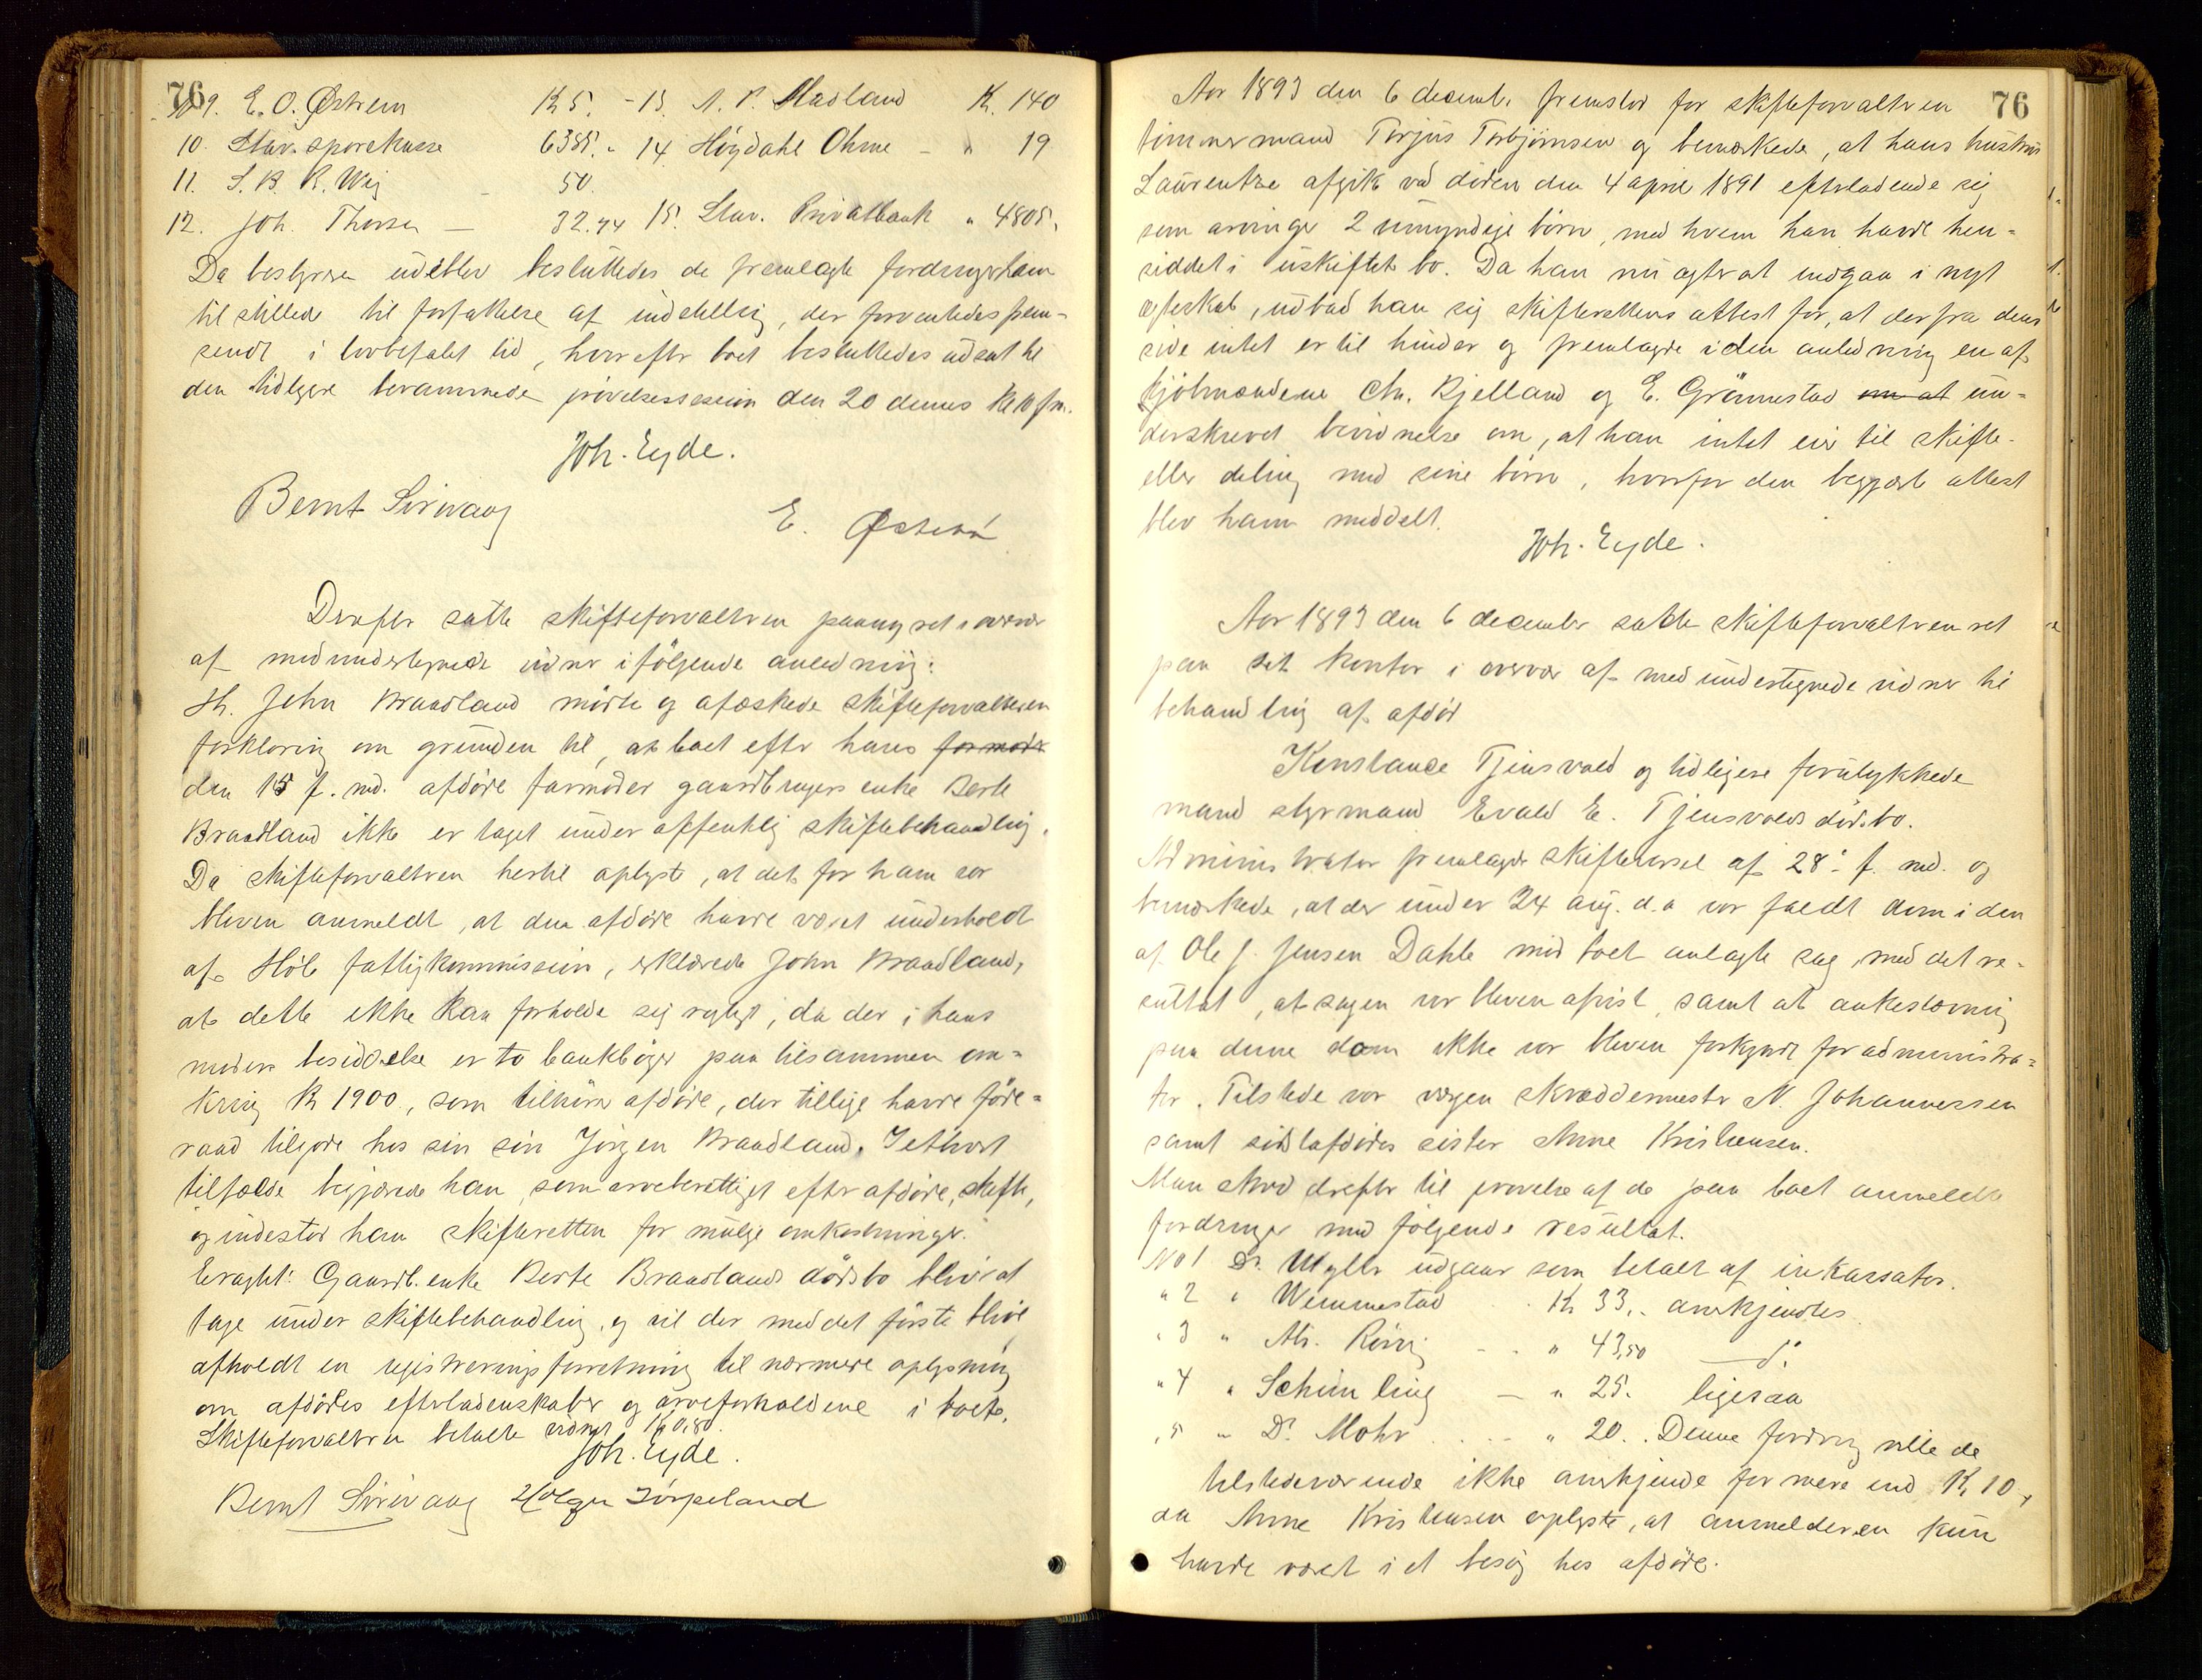 76
No 9. E. O. Østrem K 5. - 13. A. P. Madland K. 140
10. Stav. sparekasse 6385. " 14 Høydahl Ohme - " 19
11. S. B. R. Wij - 50.
12. Joh. Thorsen - 32.44 15. Stav. Privatbank " 4805.
Da bestyreren udebliver besluttedes de fremlagte fordringer ham
tilstillede til forfattelse af indstilling, der forventedes frem-
sendt i lovbefalet tid, hvorefter boet besluttedes udsat til
den tidligere berammede prøvelsessession den 20 dennes Kl 10 fm.
Joh. Eyde.
Bernt Sirivaag
E. Østebø
Derefter satte skifteforvalteren paany ret i overvær
af medundertegnede vidner i følgende anledning:
Hr. John Braadland mødte og afæskede skifteforvalteren
forklaring om grunden til, at boet efter hans formoder
den 15 f. md. afdøde farmoder gaardbrugers enke Berte
Braadland ikke er taget under offentlig skiftebehandling.
Da skifteforvalteren hertil oplyste, at det for ham var
bleven anmeldt, at den afdøde havde været underholdt
af Høle fattigkommission, erklærede John Braadland,
at dette ikke kan forholde sig rigtigt, da der i hans
moders besiddelse er to bankbøger paa tilsammen om-
kring K 1900, som tilhører afdøde, der tillige havde føde-
raad tilgode hos sin søn Jørgen Braadland. I ethvert
tilfælde begjærede han, som arveberettiget efter afdøde, skifte,
og indestod han skifteretten for mulige omkostninger.
Eragtet: Gaardb. enke Berte Braadlands dødsbo bliver at
tage under skiftebehandling, og vil der med det første blive
afholdt en registreringsforretning til nærmere oplysning
om afdødes efterladenskaber og arveforholdene i boet.
Skifteforvalteren betalte vidnet K 0,80.
Joh. Eyde.
Bernt Sirivaag Holger Jörpeland
76
Aar 1893 den 6 decemb. fremstod for skifteforvalteren
tømmermand Torjus Torbjørnsen og bemærkede, at hans hustru
Laurentze afgik ved døden den 4 april 1891 efterladende sig
som arvinger 2 umyndige børn, med hvem han havde hen-
siddet i uskiftet bo. Da han nu agter at indgaa i nyt
ægteskab, udbad han sig skifterettens attest for, at der fra dens
side intet er til hinder og fremlagde i den anledning en af
kjøbmændene Chr. Kjelland og E. Grønnestad om at un-
derskrevet bevidnelse om, at han intet eier til skifte-
eller deling med sine børn, hvorfor den begjærte attest
blev ham meddelt.
Joh. Eyde.
Aar 1893 den 6 december satte skifteforvalteren ret
paa sit kontor i overvær af medundertegnede vidner til
behandling af afdød
Konstance Tjensvold og tidligere forulykkede
mand styrmand Evald E. Tjensvolds dødsbo.
Administrator fremlagde skiftevarsel af 28: f. md. og
bemærkede, at der under 24 aug. d.a var faldt dom i den
af Ole J. Jensen Dahle mod boet anlagte sag, med det re-
sultat, at sagen var bleven afvist, samt at ankestævning
paa denne dom ikke var bleven forkyndt for administra-
tor. Tilstede var værgen skræddermester N. Johannessen
samt sidstafdødes søster Anne Kristensen.
Man skred derefter til prøvelse af de paa boet anmeldte
fordringer med følgende resultat.
No 1 Dr. Wyller udgaar som betalt af inkassator.
" 2 " Wemmestad . . K 33,- anerkjendtes
" 3 " Alr. Rönig - . " 43,50 — d:
" 4 " Schimling — " 25. ligesaa
" 5 " Dr. Mohr . . - " 20. . Denne fordring ville de
tilstedeværende ikke anerkjende for mere end K 10,
da Anne Kristensen oplyste, at anmelderen kun
havde været i et besøg hos afdøde.